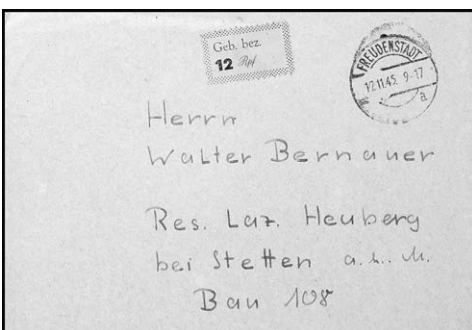 Geb. bez.
12 Rpf
FREUDENSTADT
12.11.45. 9-17
a
Herrn
Walter Bernauer
Res. Laz. Heuberg
bei Stetten a. k. M.
Bau 108